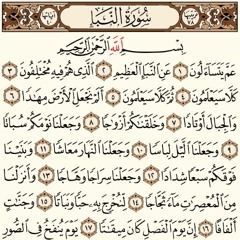 سُورَةُ النَّبَإِ
بِسْمِ اللَّهِ الرَّحْمَٰنِ الرَّحِيمِ
عَمَّ يَتَسَآءَلُونَ ١ عَنِ النَّبَإِ الْعَظِيمِ ٢ الَّذِى هُمْ فِيهِ مُخْتَلِفُونَ ٣
كَلَّا سَيَعْلَمُونَ ٤ ثُمَّ كَلَّا سَيَعْلَمُونَ ٥ أَلَمْ نَجْعَلِ الْأَرْضَ مِهَٰدًا ٦
وَالْجِبَالَ أَوْتَادًا ٧ وَخَلَقْنَٰكُمْ أَزْوَٰجًا ٨ وَجَعَلْنَا نَوْمَكُمْ سُبَاتًا
٩ وَجَعَلْنَا الَّيْلَ لِبَاسًا ١٠ وَجَعَلْنَا النَّهَارَ مَعَاشًا ١١ وَبَنَيْنَا
فَوْقَكُمْ سَبْعًا شِدَادًا ١٢ وَجَعَلْنَا سِرَاجًا وَهَّاجًا ١٣ وَأَنزَلْنَا
مِنَ الْمُعْصِرَٰتِ مَآءً ثَجَّاجًا ١٤ لِّنُخْرِجَ بِهِ حَبًّا وَنَبَاتًا ١٥ وَجَنَّٰتٍ
أَلْفَافًا ١٦ إِنَّ يَوْمَ الْفَصْلِ كَانَ مِيقَٰتًا ١٧ يَوْمَ يُنفَخُ فِى الصُّورِ